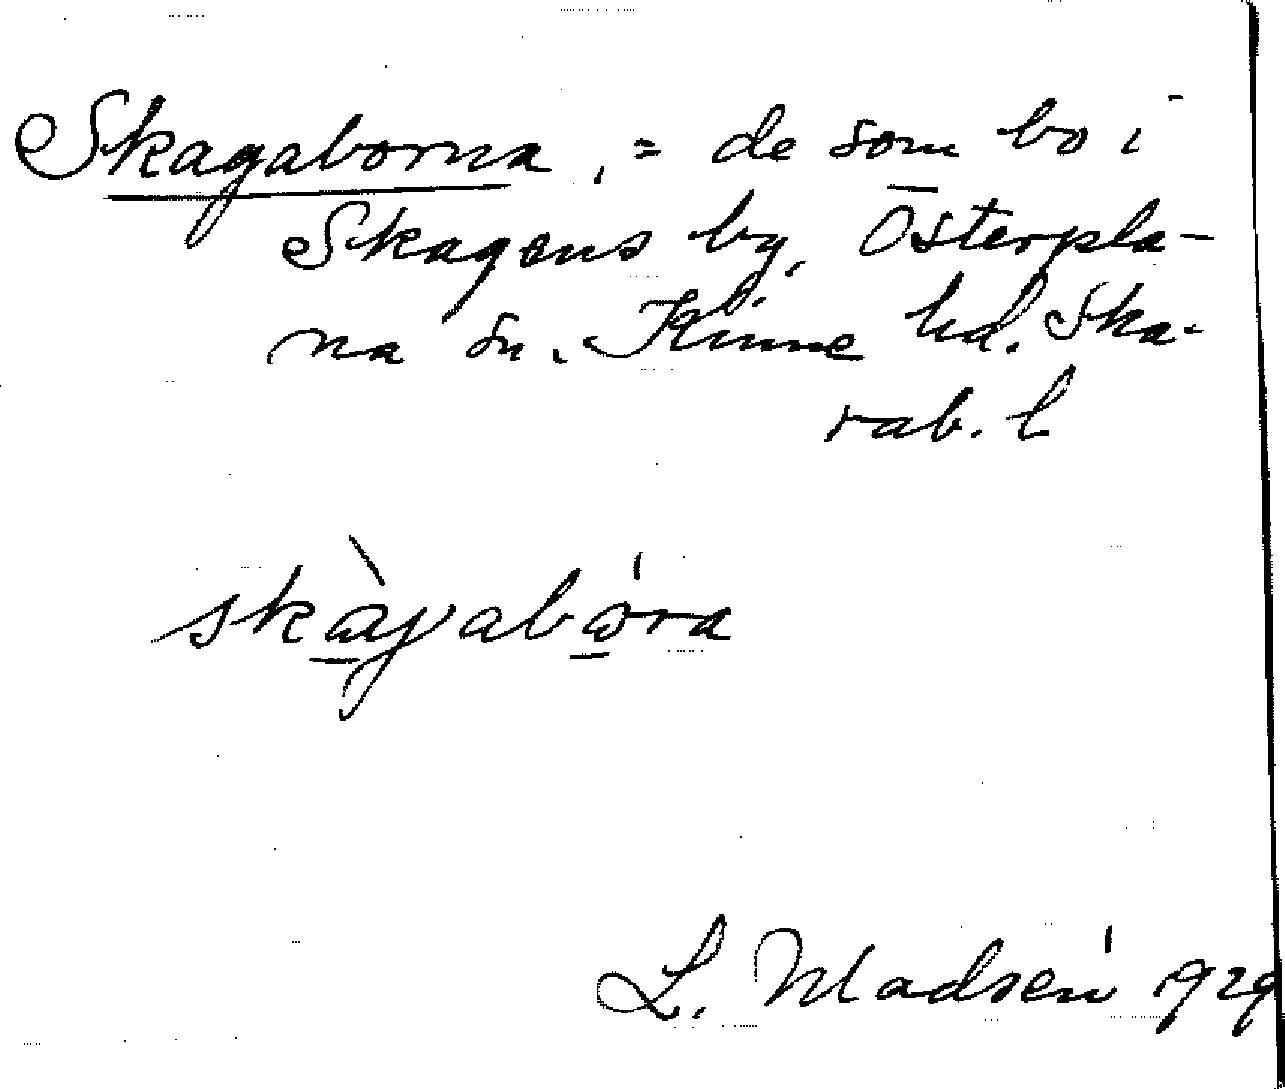 Skagaborna, = de som bo i
Skagens by, Österpla-
na sn. Kinne hd. Ska-
rab. l
skàgabóra
L. Madsén 1929